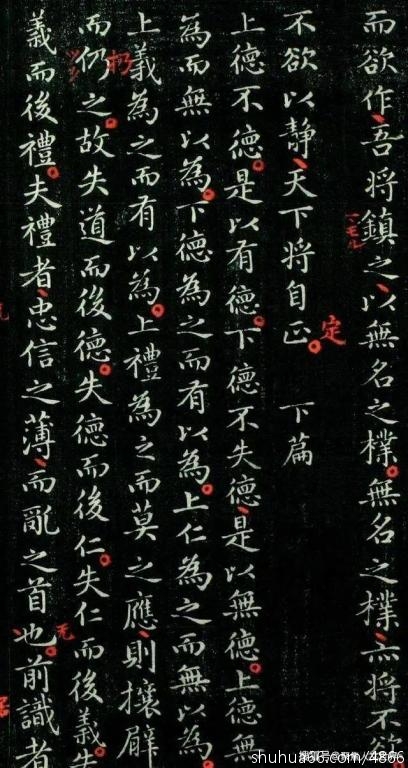 而欲作、吾將鎮之、以無名之樸。無名之樸、亦將不欲。
不欲以靜、天下將自正。 下篇
定
上德不德。是以有德。下德不失德、是以無德。上德無
為而無以為。下德為之而有以為。上仁為之而無以為。
上義為之而有以為。上禮為之而莫之應、則攘臂
扔
而仍之。故失道而後德。失德而後仁。失仁而後義。失
義而後禮。夫禮者、忠信之薄、而亂之首也、前識者
无
shuhua66.com/4866